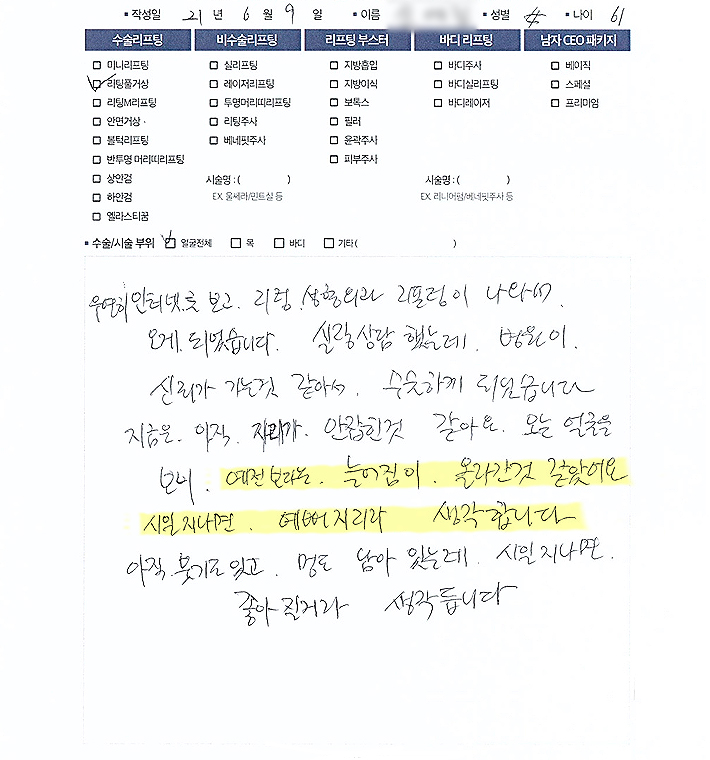 ▪ 작성일 21 년 6 월 9 일 ▪ 이름 ▪ 성별 ▪ 나이 61
수술리프팅 비수술리프팅 리프팅 부스터 바디 리프팅 남자 CEO 패키지
미니리프팅 실리프팅 지방흡입 바디주사 베이직
리팅풀거상 레이저리프팅 지방이식 바디실리프팅 스페셜
리팅M리프팅 투명머리띠리프팅 보톡스 바디레이저 프리미엄
안면거상 리팅주사 필러
볼턱리프팅 베네핏주사 윤곽주사
반투명 머리띠리프팅 피부주사
상안검 시술명 : ( ) 시술명 : ( )
하안검 EX. 울쎄라/민트실 등 EX. 리니어펌/베네핏주사 등
엘라스티꿈
▪ 수술/시술 부위 얼굴전체 목 바디 기타 ( )
우연히 인터넷으로 보고. 리팅. 성형외과 리프팅이 나와서.
오게. 되었습니다. 실장상담 했는데. 병원이.
신뢰가 가는것 같아서. 수술하게 되었습니다
지금은. 아직. 자리가. 안잡힌것 같아요. 오늘 얼굴을
보니. 예전보다는. 늘어짐이. 올라간것 같았어요
시일 지나면. 예뻐지리라 생각합니다
아직. 붓기도 있고. 멍도 남아 있는데. 시일 지나면.
좋아질거라 생각듭니다